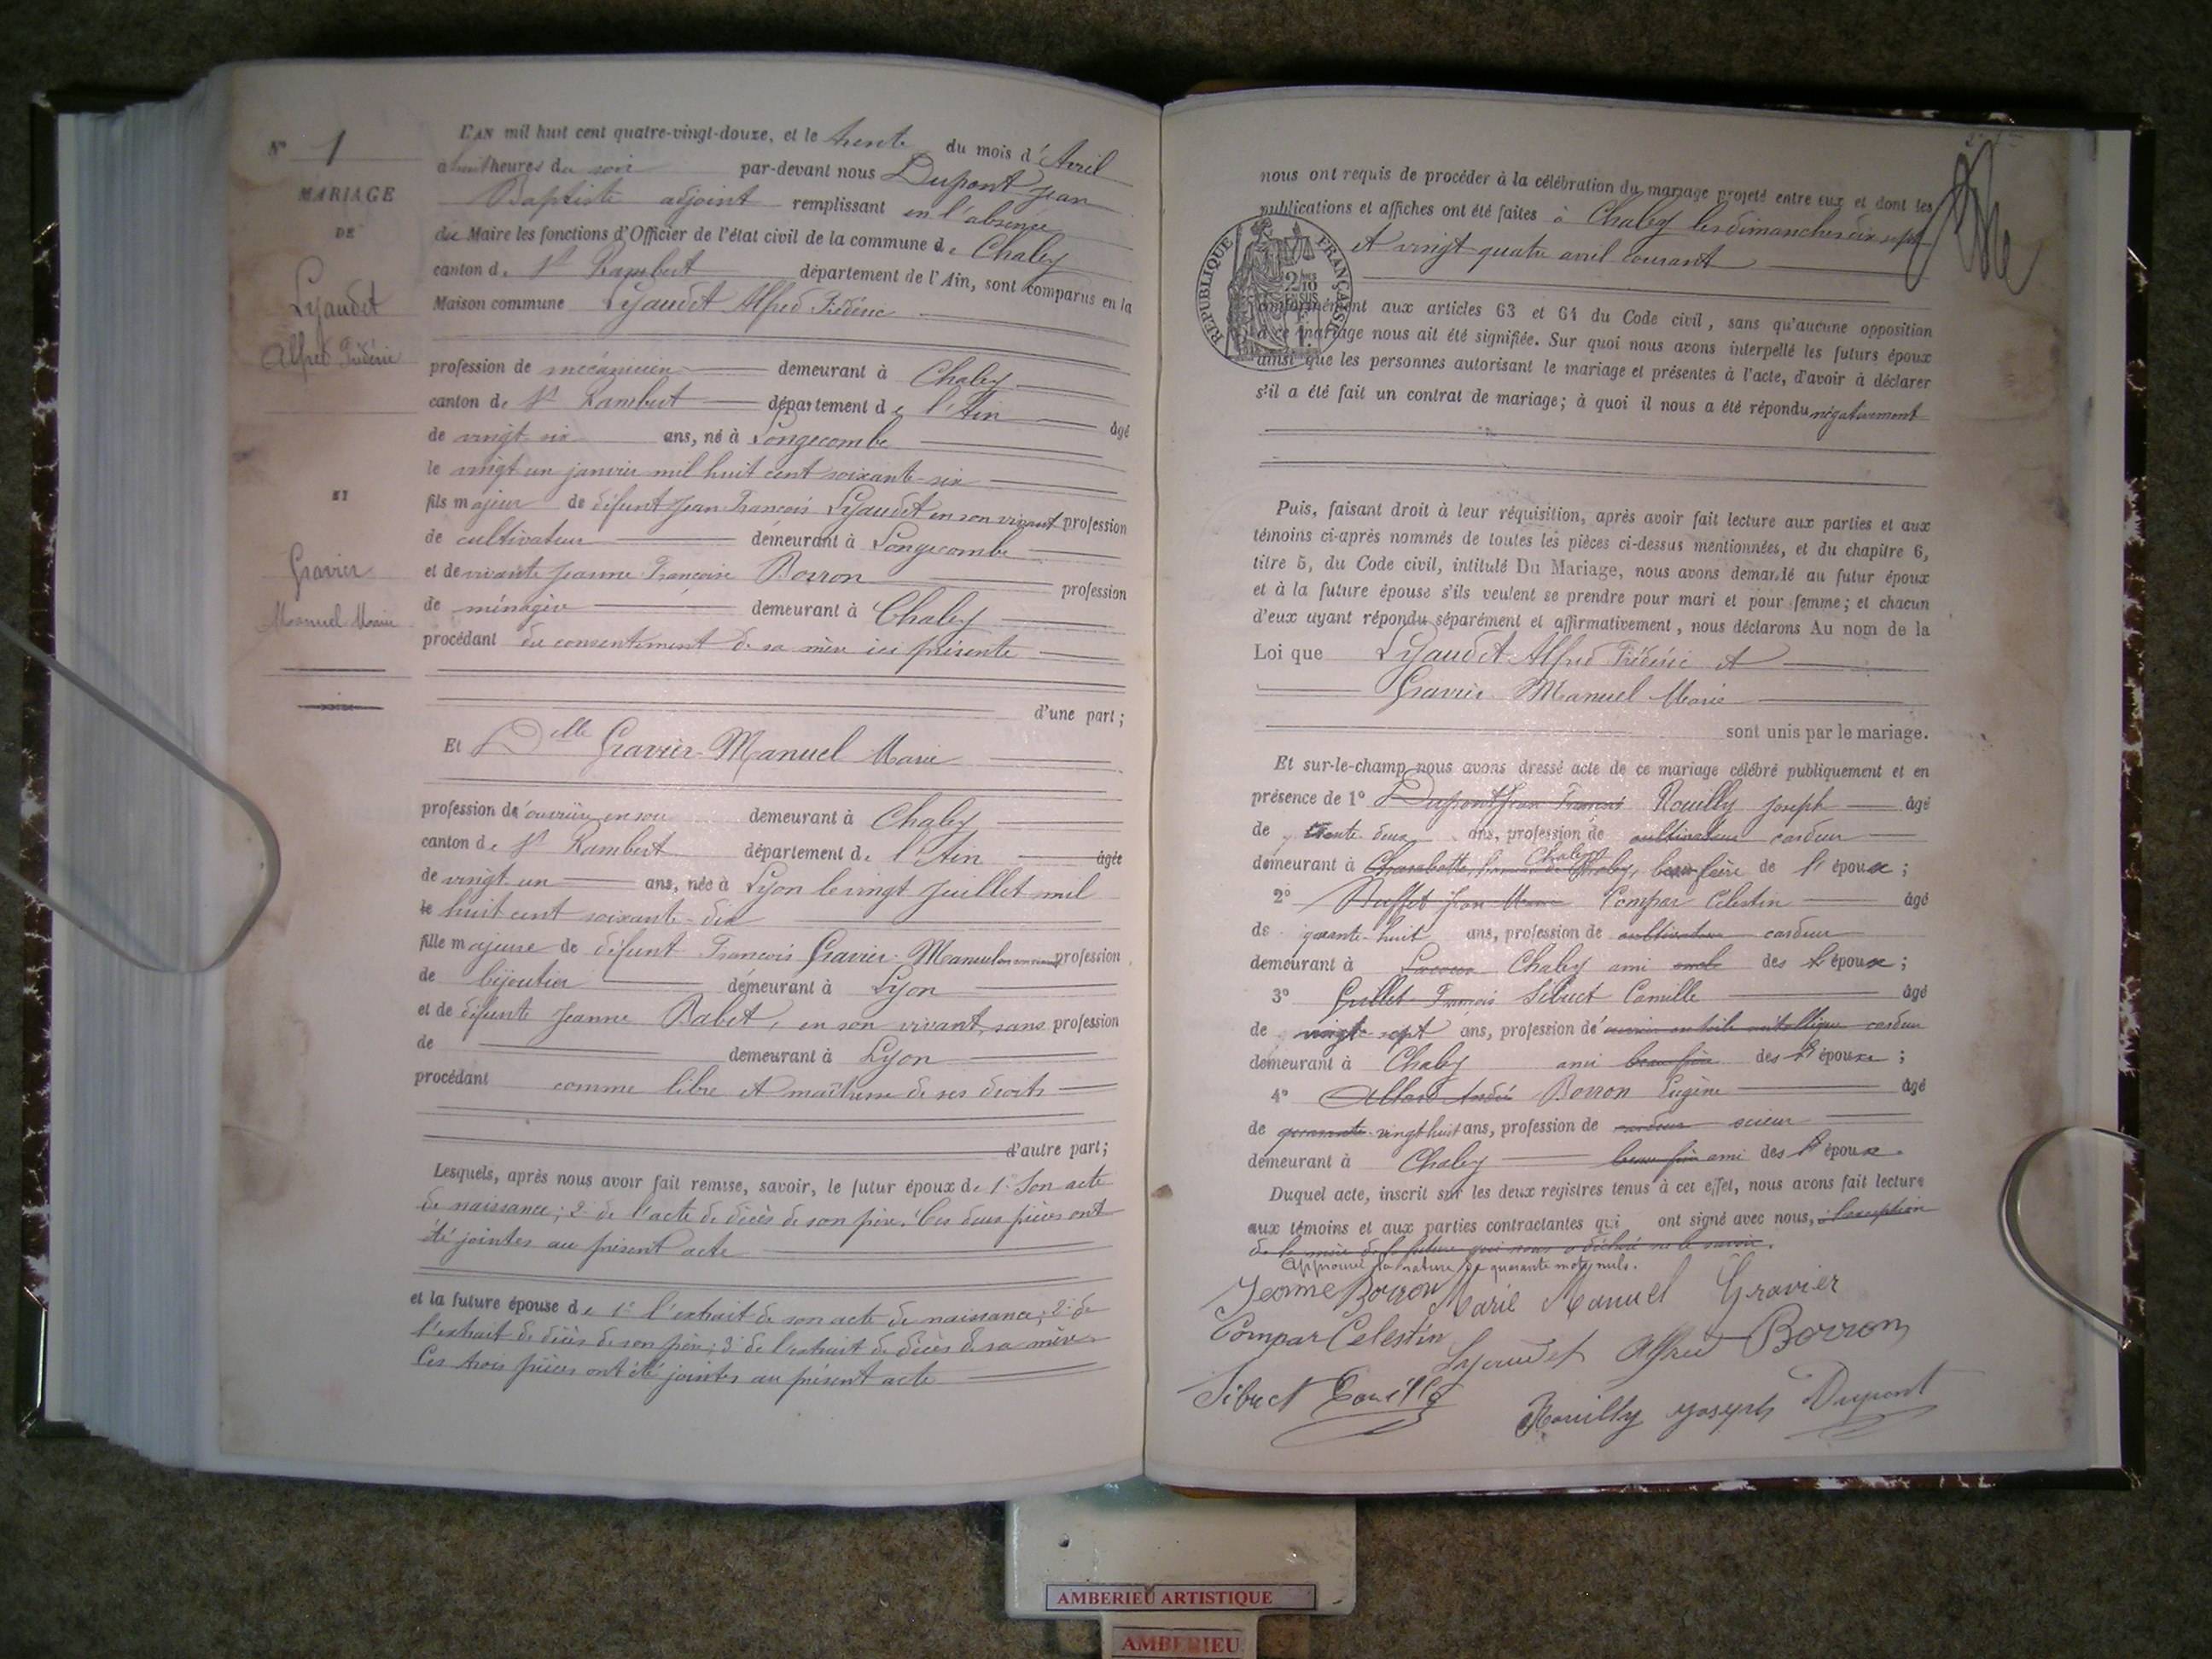 N° 1
MARIAGE
DE
Lyaudet
Alfred Frédéric
ET
Gravier
Manuel Marie
L'AN mil huit cent quatre-vingt-douze, et le trente du mois d'Avril
à huit heures du soir par-devant nous Dupont Jean
Baptiste adjoint remplissant en l'absence
du Maire les fonctions d'Officier de l'état civil de la commune de Chaley
canton de St Rambert département de l'Ain, sont comparus en la
Maison commune Lyaudet Alfred Frédéric
profession de mécanicien demeurant à Chaley
canton de St Rambert département de l'Ain âgé
de vingt six ans, né à Longecombe
le vingt un janvier mil huit cent soixante-six
fils majeur de défunt Jean François Lyaudet en son vivant profession
de cultivateur demeurant à Longecombe
et de vivante Jeanne Françoise Borron profession
de ménagère demeurant à Chaley
procédant du consentement de sa mère ici présente
d'une part;
Et Delle Gravier-Manuel Marie
profession d'ouvrière en soie demeurant à Chaley
canton de St Rambert département de l'Ain âgée
de vingt un ans, née à Lyon le vingt juillet mil
le huit cent soixante-dix
fille majeure de défunt François Gravier-Manuel en son vivant profession
de bijoutier demeurant à Lyon
et de défunte Jeanne Babet, en son vivant sans profession
de demeurant à Lyon
procédant comme libre et maîtresse de ses droits
d'autre part;
Lesquels, après nous avoir fait remise, savoir, le futur époux de 1° Son acte
de naissance; 2° de l'acte de décès de son père. Ces deux pièces ont
été jointes au présent acte
et la future épouse de 1° l'extrait de son acte de naissance; 2° de
l'extrait de décès de son père; 3° de l'extrait de décès de sa mère
Ces trois pièces ont été jointes au présent acte
nous ont requis de procéder à la célébration du mariage projeté entre eux et dont les
publications et affiches ont été faites à Chaley les dimanches dix sept
et vingt quatre avril courant
RÉPUBLIQUE FRANÇAISE
conformément aux articles 63 et 64 du Code civil, sans qu'aucune opposition
à ce mariage nous ait été signifiée. Sur quoi nous avons interpellé les futurs époux
ainsi que les personnes autorisant le mariage et présentes à l'acte, d'avoir à déclarer
s'il a été fait un contrat de mariage; à quoi il nous a été répondu négativement
Puis, faisant droit à leur réquisition, après avoir fait lecture aux parties et aux
témoins ci-après nommés de toutes les pièces ci-dessus mentionnées, et du chapitre 6,
titre 5, du Code civil, intitulé Du Mariage, nous avons demandé au futur époux
et à la future épouse s'ils veulent se prendre pour mari et pour femme; et chacun
d'eux ayant répondu séparément et affirmativement, nous déclarons Au nom de la
Loi que Lyaudet Alfred Frédéric et
Gravier Manuel Marie
sont unis par le mariage.
Et sur-le-champ nous avons dressé acte de ce mariage célébré publiquement et en
présence de 1° Dupont Jean François Rouilly Joseph âgé
de trente deux ans, profession de cultivateur cardeur
demeurant à Charabotte, Chaley beau frère de l'époux;
2° Jean Marie Compar Célestin âgé
de quarante-huit ans, profession de cultivateur cardeur
demeurant à Chaley ami oncle des l'époux;
3° Grillet François Sibuet Camille âgé
de vingt-sept ans, profession d'ouvrier en toile métallique cardeur
demeurant à Chaley ami beau frère des l'époux;
4° Allard André Borron Eugène âgé
de quarante vingt huit ans, profession de cardeur scieur
demeurant à Chaley beau frère ami des l'époux.
Duquel acte, inscrit sur les deux registres tenus à cet effet, nous avons fait lecture
aux témoins et aux parties contractantes qui ont signé avec nous, à l'exception
de la mère de la future qui nous a déclaré ne le savoir.
Approuvé la rature de quarante mots nuls.
Jeanne Borron Marie Manuel Gravier
Compar Celestin
Lyaudet Alfred Borron
Sibuet Camille
Rouilly Joseph Dupont
AMBERIEU ARTISTIQUE
AMBERIEU